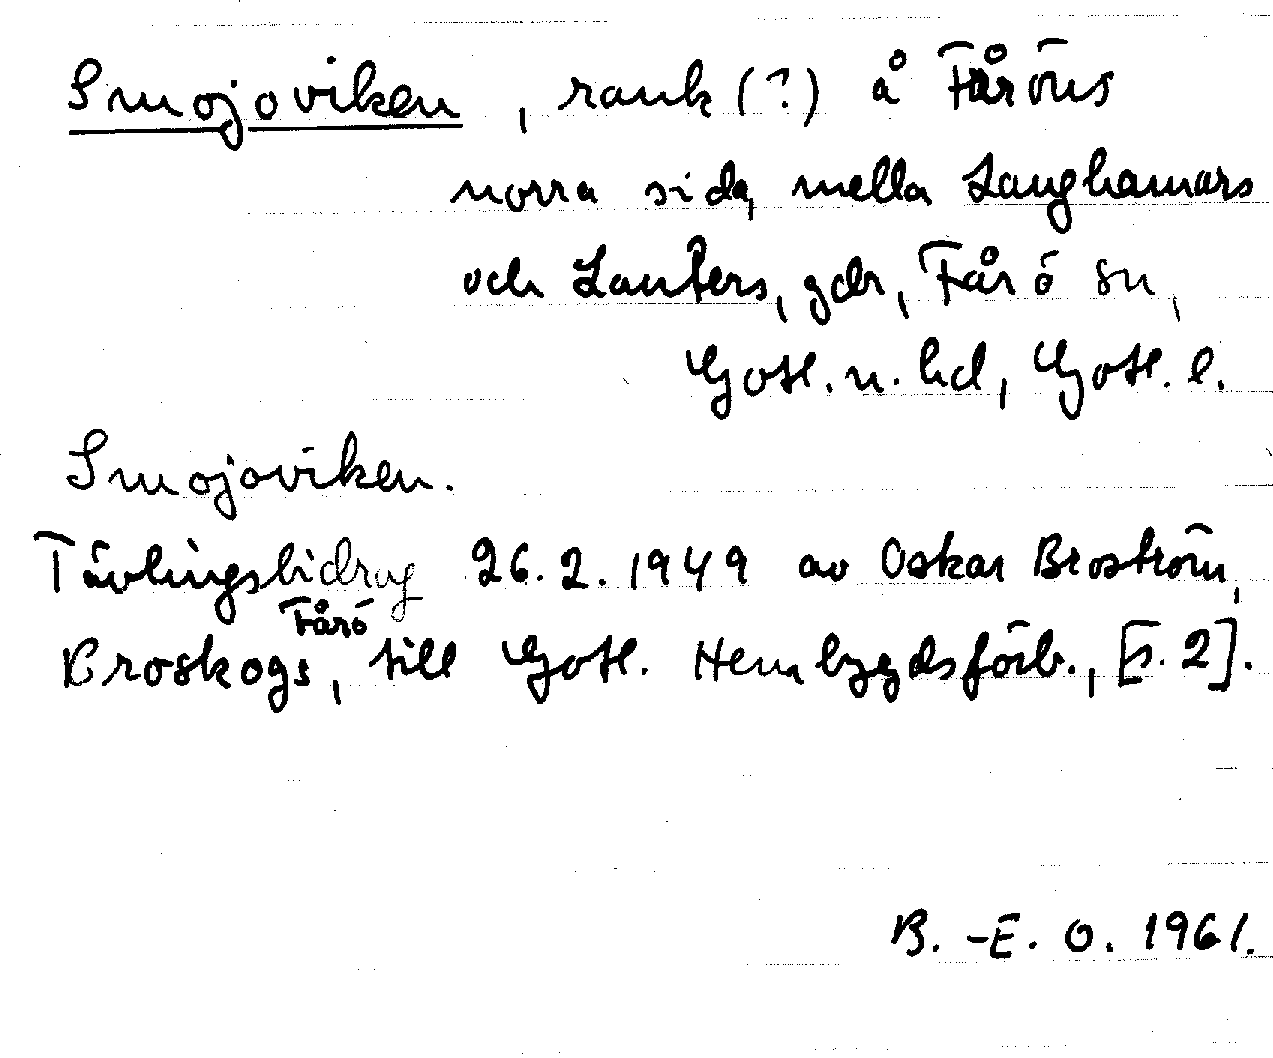 Smojoviken, rauk (?) å Fåröns
norra sida, mella Langhamars
och Lauters, gdr, Fårö sn,
Gotl. n. hd, Gotl. l.
Smojoviken.
Tävlingsbidrag 26.2.1949 av Oskar Broström,
Fårö
Broskogs, till Gotl. Hembygdsförb., [s. 2].
B.-E. O. 1961.